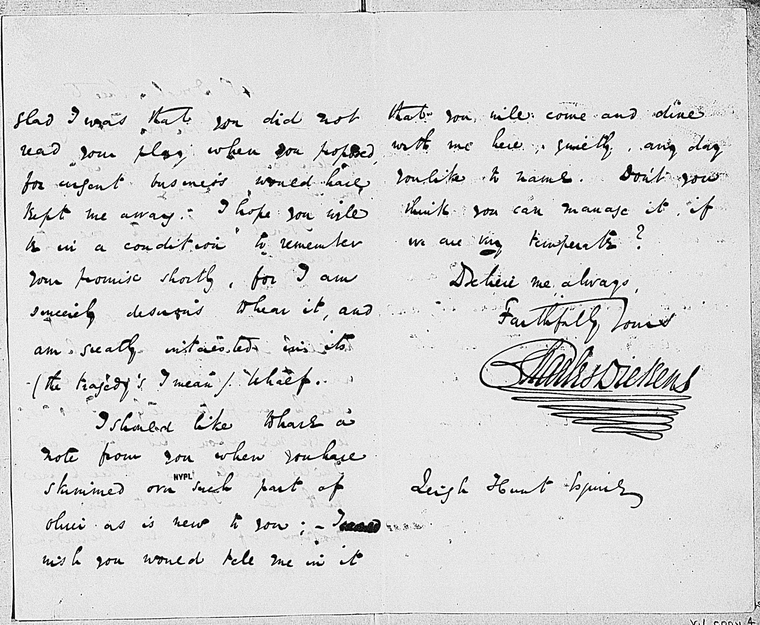 glad I was that you did not
read your play when you proposed,
for urgent business would have
kept me away. I hope you will
be in a condition to remember
your promise shortly, for I am
sincerely desirous to hear it, and
am greatly interested in its
(the tragedy's I mean)
I should like to have a
note from you when you have
skimmed over such part of
NYPL
Oliver as is new to you; – I
wish you would tell me in it
that you will come and dine
with me here, quietly, any day
you like to name. Don't you
think you can manage it, if
we are very temperate?
Believe me always,
Faithfully Yours
Charles Dickens
Leigh Hunt Esquire